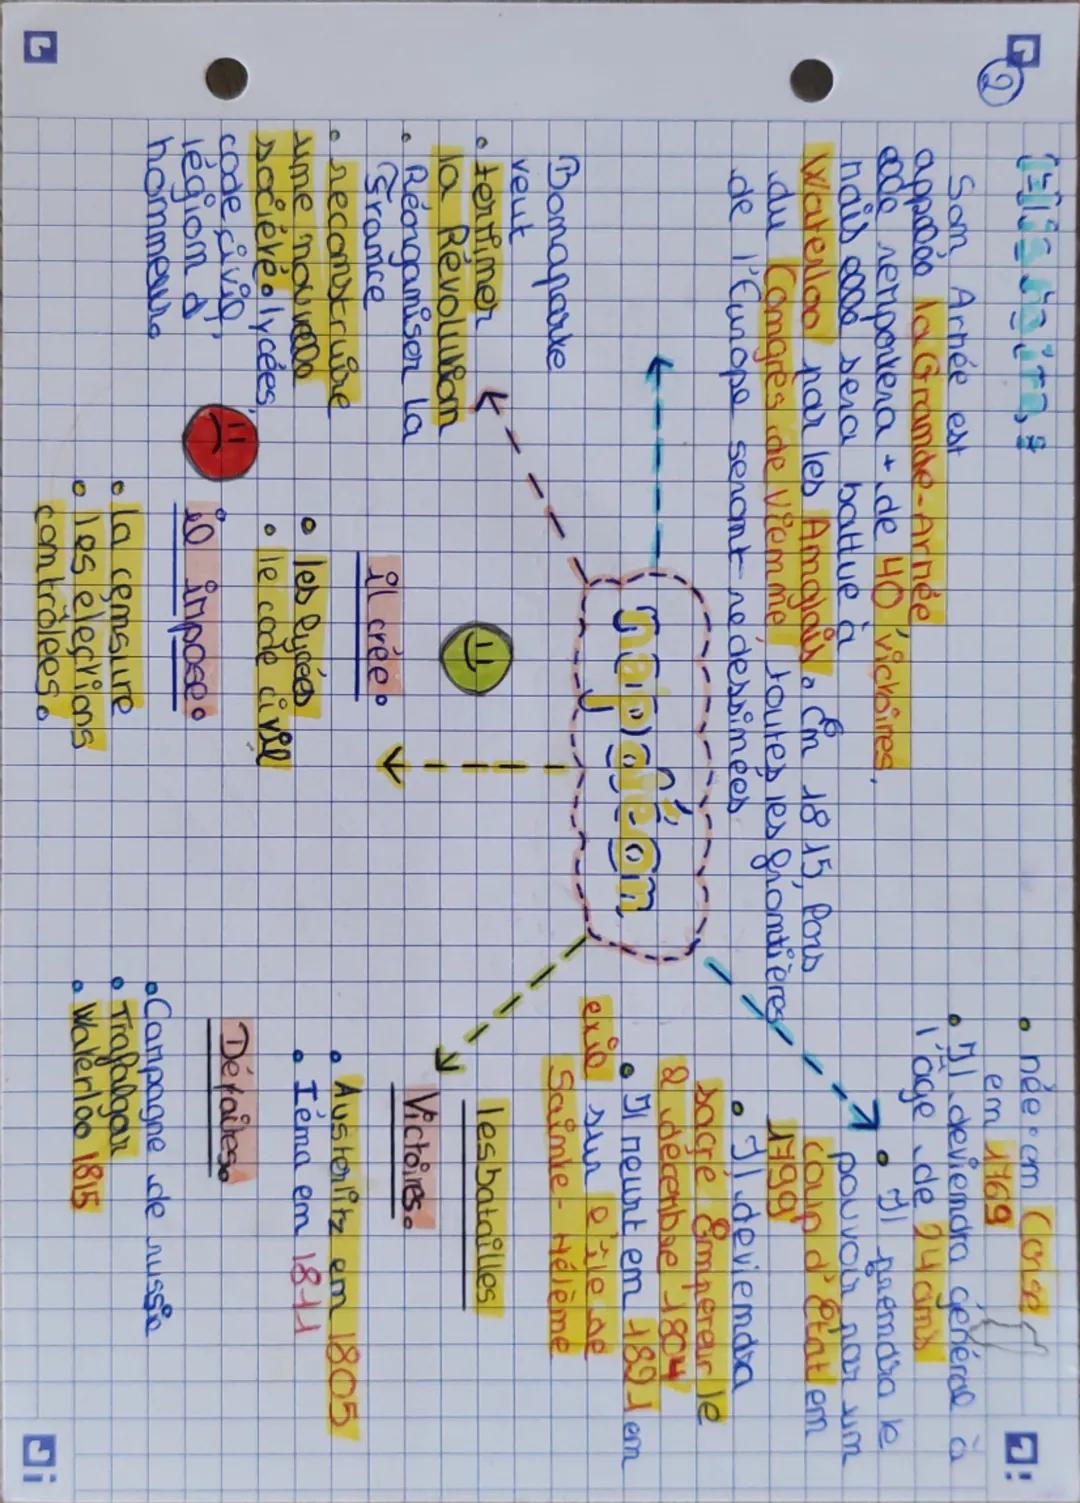 2
Histoire :
Son Armée est
appelée la Grande-Armée
elle remportera + de 40 victoires,
mais elle sera battue à
Waterloo par les Anglais. En 1815, lors
du Congrès de Vienne, toutes les frontières
de l'Europe seront redessinées
• née en Corse
en 1769
• Il deviendra général à
l'âge de 24 ans
• Il prendra le
pouvoir par un
coup d'État en
1799
• Il deviendra
sacré Empereur le
2 décembre 1804
• Il meurt en 1821 en
exil sur l'île de
Sainte-Hélème
napoléon
Bonaparte
veut
• terminer
la Révolution
• Réorganiser la
France
• reconstruire
une nouvelle
société. lycées,
code civil,
légion d
honneur.
il crée.
• les lycées
• le code civil
il impose.
• la censure
• les élections
contrôlées.
les batailles
Victoires.
• Austerlitz en 1805
• Iéna en 1811
Défaites.
• Campagne de russie
• Trafalgar
• Waterloo 1815